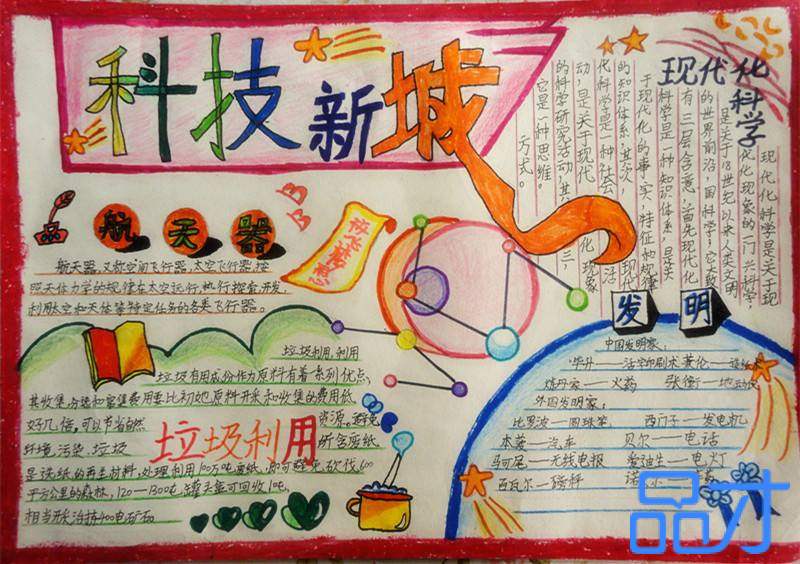 科技新城
现代化科学
现代化科学是关于现
代化现象的一门大科学,
是关于18世纪以来人类文明
的世界前沿,
有三层含意,首先现代化
科学是一种知识体系,是关
于现代化的事实、特征和规律
的知识体系,其次,现代
化科学是一种社会活
动,是关于现代化现象
的科学研究活动,其三,
它是一种思维
方式。
航天器
放飞梦想
航天器,又称空间飞行器,太空飞行器,按
照天体力学的规律在太空运行,执行探索,开发,
利用太空和天体等特定任务的各类飞行器。
垃圾利用
垃圾利用,利用
垃圾有用成份作为原料有着一系列优点,
其收集,分选和富集费用要比初始原料开采和收集的费用低
好几倍,可以节省自然资源,避免
环境污染,垃圾所含废纸
是造纸的再生材料,处理利用100万吨废纸,即可避免砍伐600
平方公里的森林,120—1300吨罐头盒可回收1吨
相当开采冶炼400吨矿石
发明
中国发明家:
毕升——活字印刷术 蔡伦——造纸
炼丹家——火药 张衡——地动仪
外国发明家:
比罗波——圆珠笔 西门子——发电机
本茨——汽车 贝尔——电话
马可尼——无线电报 爱迪生——电灯
瓦尔——磅秤
品才